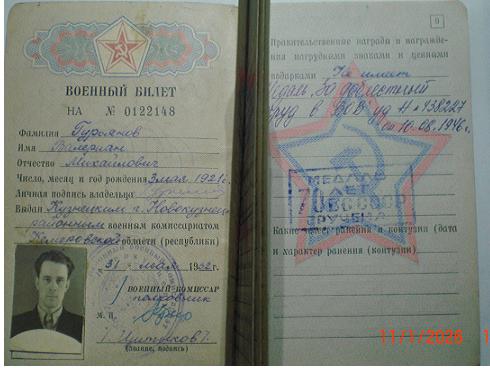 ВОЕННЫЙ БИЛЕТ
НА № 0122148
Фамилия
Имя Валериан
Отчество Михайлович
Число, месяц и год рождения 3 мая 1921 г.
Личная подпись владельца
Выдан Кузнецким г. Новокузнец
районным военным комиссариатом
Кемеровской области (республики)
31 мая 1952 г.
ВОЕННЫЙ КОМИССАР
полковник
М. П.
(звание, подпись)
9
Правительственные награды и награжде
ния нагрудными знаками и ценными
подарками Не имеет
Медаль „За доблестный
труд в ВОВ" уд. Н
от 10.08.1946 г.
МЕДАЛЬ
70 ЛЕТ
ВС СССР
ВРУЧЕНА
Какие имеет ранения и контузии (дата
и характер ранения (контузии)
11/1/2026 1